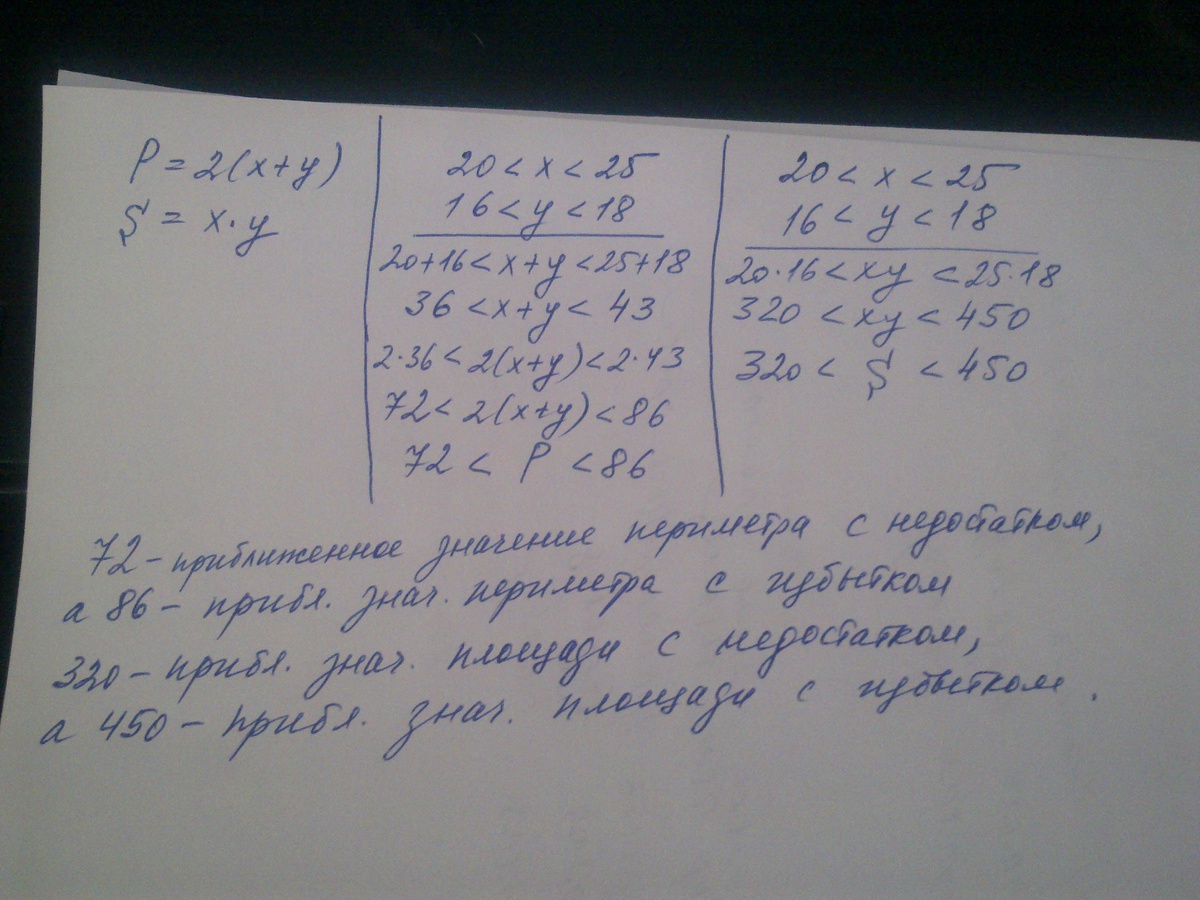 P = 2(x+y)
S = x·y
20 < x < 25
16 < y < 18
20+16 < x+y < 25+18
36 < x+y < 43
2·36 < 2(x+y) < 2·43
72 < 2(x+y) < 86
72 < P < 86
20 < x < 25
16 < y < 18
20·16 < xy < 25·18
320 < xy < 450
320 < S < 450
72 – приближенное значение периметра с недостатком,
а 86 – прибл. знач. периметра с избытком
320 – прибл. знач. площади с недостатком,
а 450 – прибл. знач. площади с избытком.